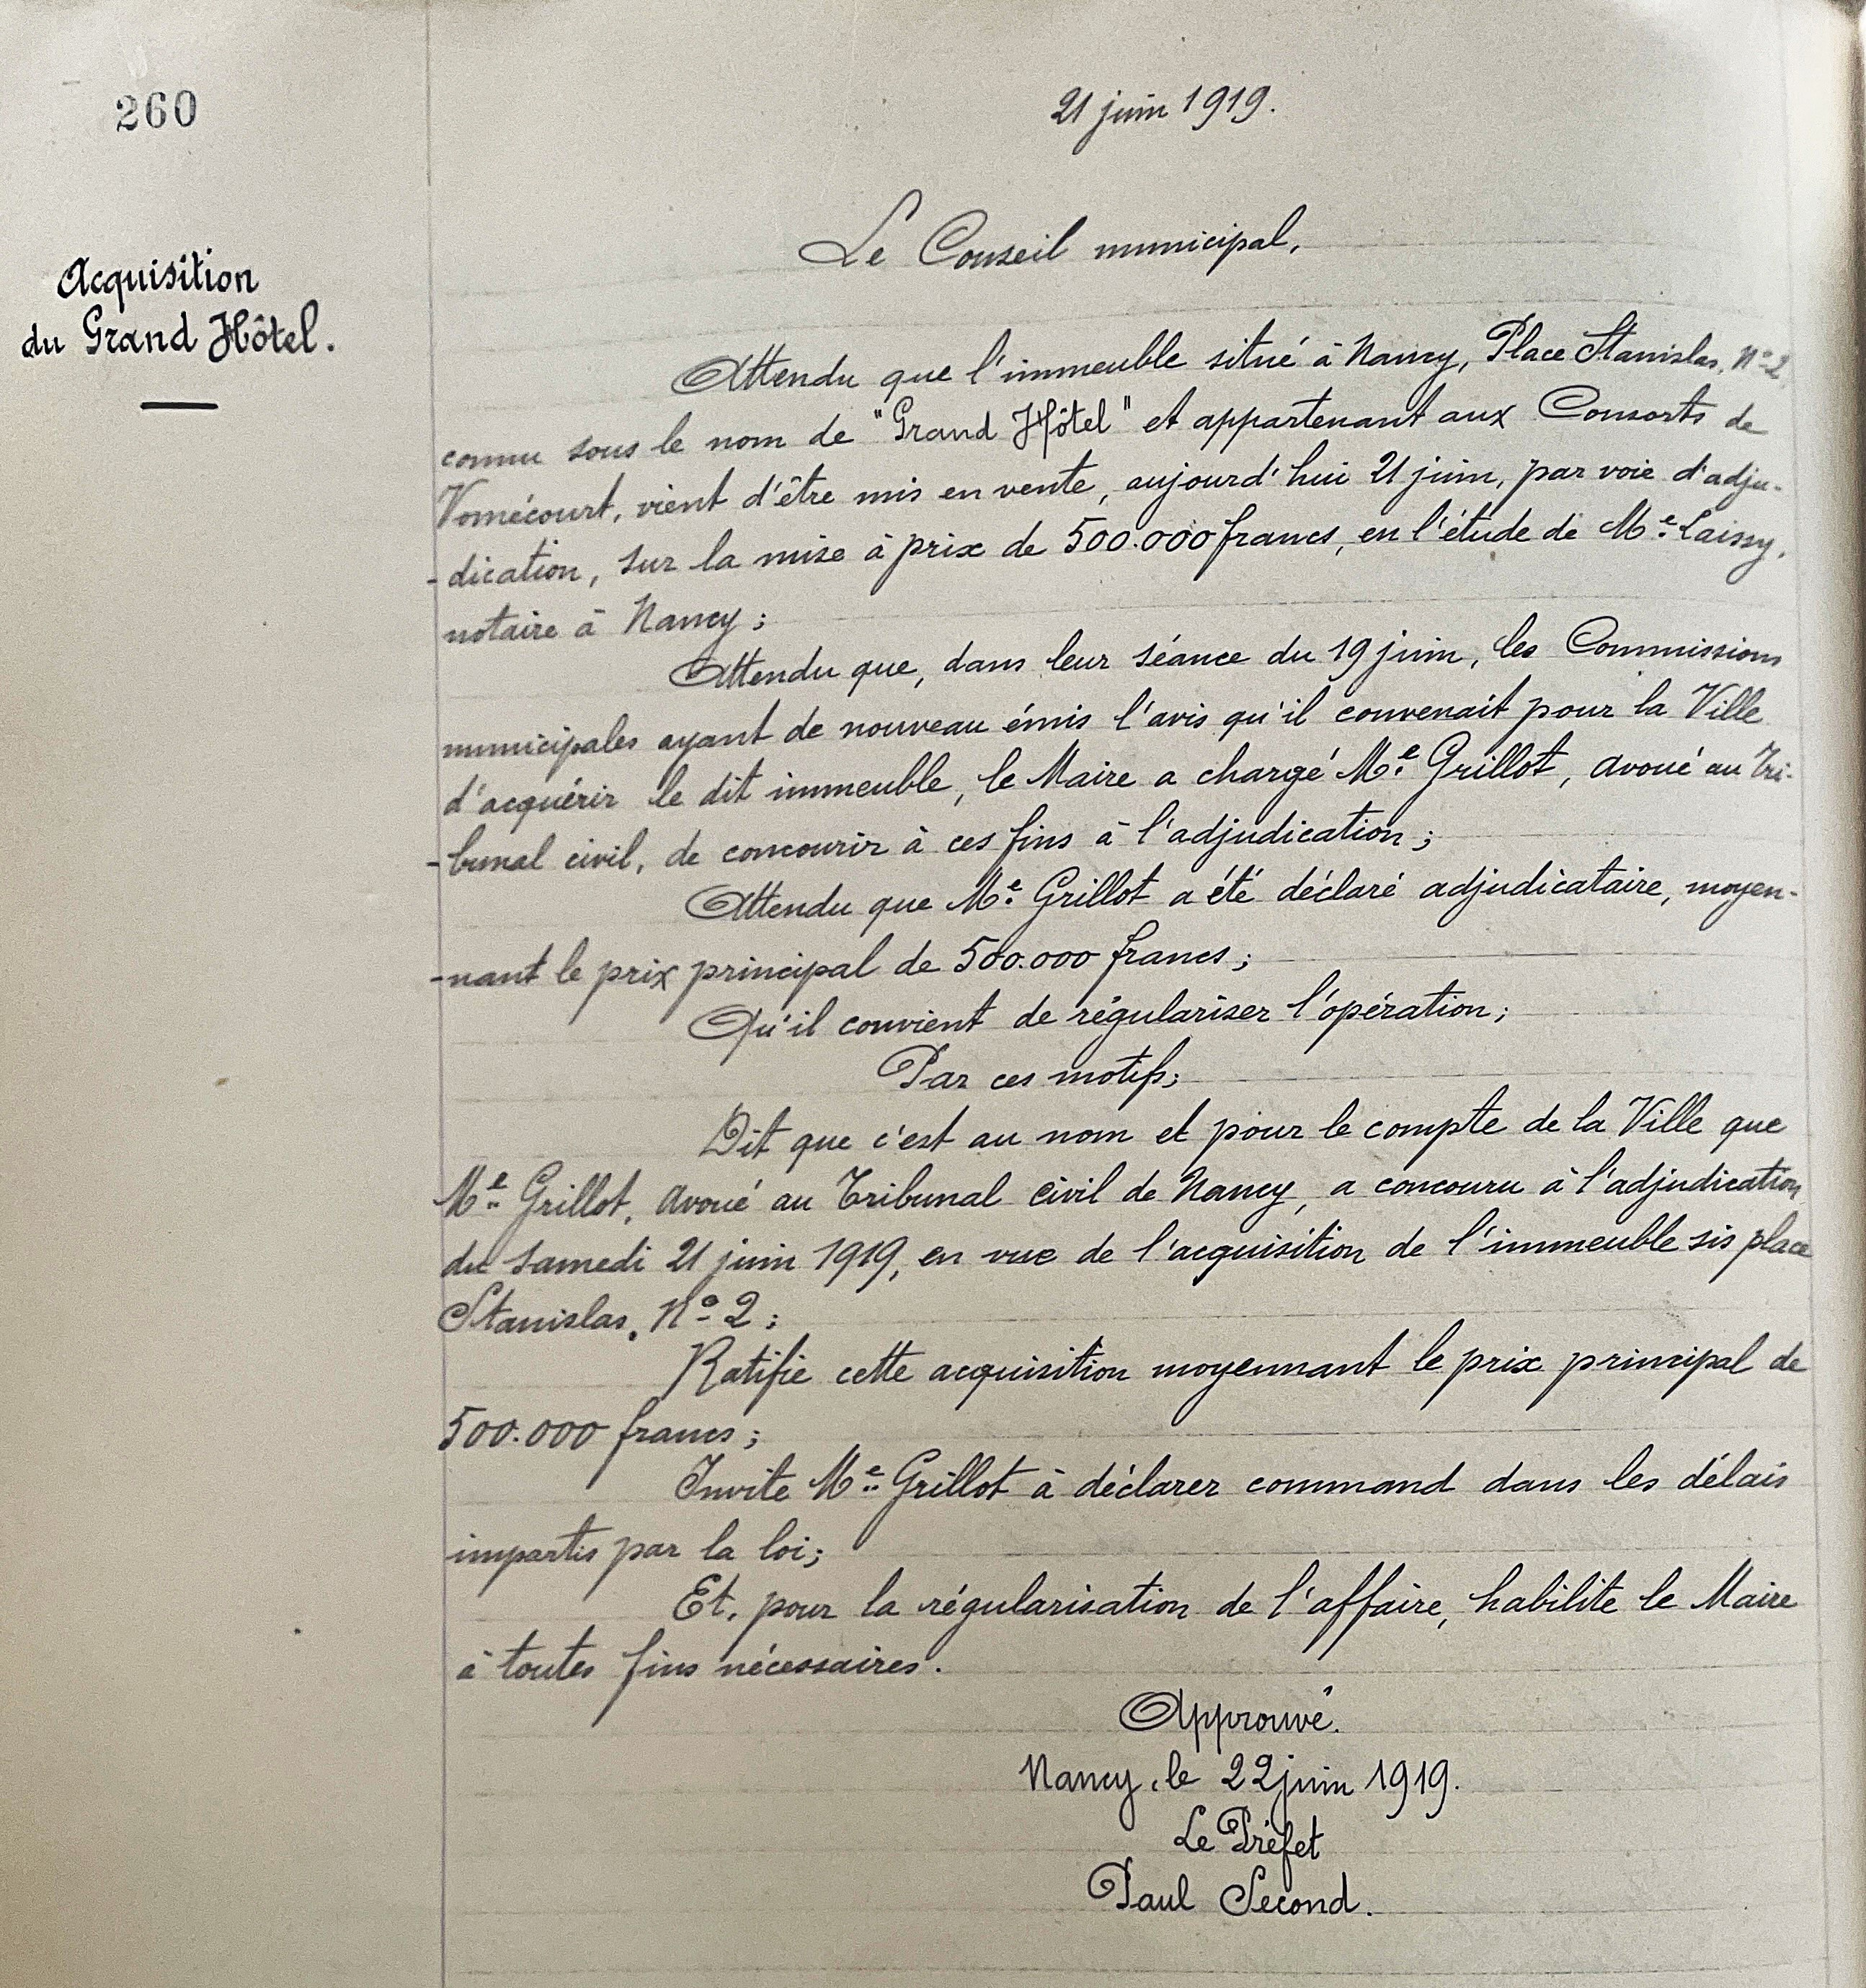 260
21 juin 1919.
Acquisition
du Grand Hôtel.
Le Conseil municipal,
Attendu que l'immeuble situé à Nancy, Place Stanislas, Nº 2,
connu sous le nom de "Grand Hôtel" et appartenant aux Consorts de
Vomécourt, vient d'être mis en vente, aujourd'hui 21 juin, par voie d'adju-
-dication, sur la mise à prix de 500.000 francs, en l'étude de Me Laissy,
notaire à Nancy;
Attendu que, dans leur séance du 19 juin, les Commissions
municipales ayant de nouveau émis l'avis qu'il convenait pour la Ville
d'acquérir le dit immeuble, le Maire a chargé Me Grillot, avoué au Tri-
-bunal civil, de concourir à ces fins à l'adjudication;
Attendu que Me Grillot a été déclaré adjudicataire, moyen-
-nant le prix principal de 500.000 francs;
Qu'il convient de régulariser l'opération;
Par ces motifs;
Dit que c'est au nom et pour le compte de la Ville que
Me Grillot, avoué au Tribunal civil de Nancy, a concouru à l'adjudication
du samedi 21 juin 1919, en vue de l'acquisition de l'immeuble sis place
Stanislas, Nº 2;
Ratifie cette acquisition moyennant le prix principal de
500.000 francs;
Invite Me Grillot à déclarer command dans les délais
impartis par la loi;
Et, pour la régularisation de l'affaire, habilite le Maire
à toutes fins nécessaires.
Approuvé.
Nancy, le 22 juin 1919.
Le Préfet
Paul Second.